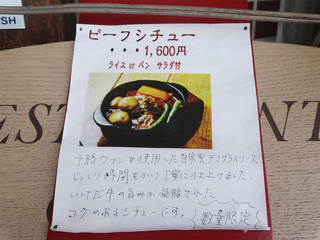 SH
ビーフシチュー
・・・1,600円
ライス or パン サラダ付
十勝ワインを使用した自家製デミグラスソース
じっくり時間をかけ丁寧に仕上げました。
いけだ牛の旨みが凝縮された
コクのあるシチューです。
数量限定